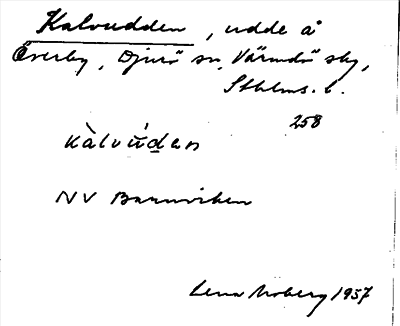 Kalvudden, udde å
Överby, Djurö sn, Värmdö skg,
Sthlms. l.
258
kàlvu̇́den
NV Bamviken
Lena Moberg 1957